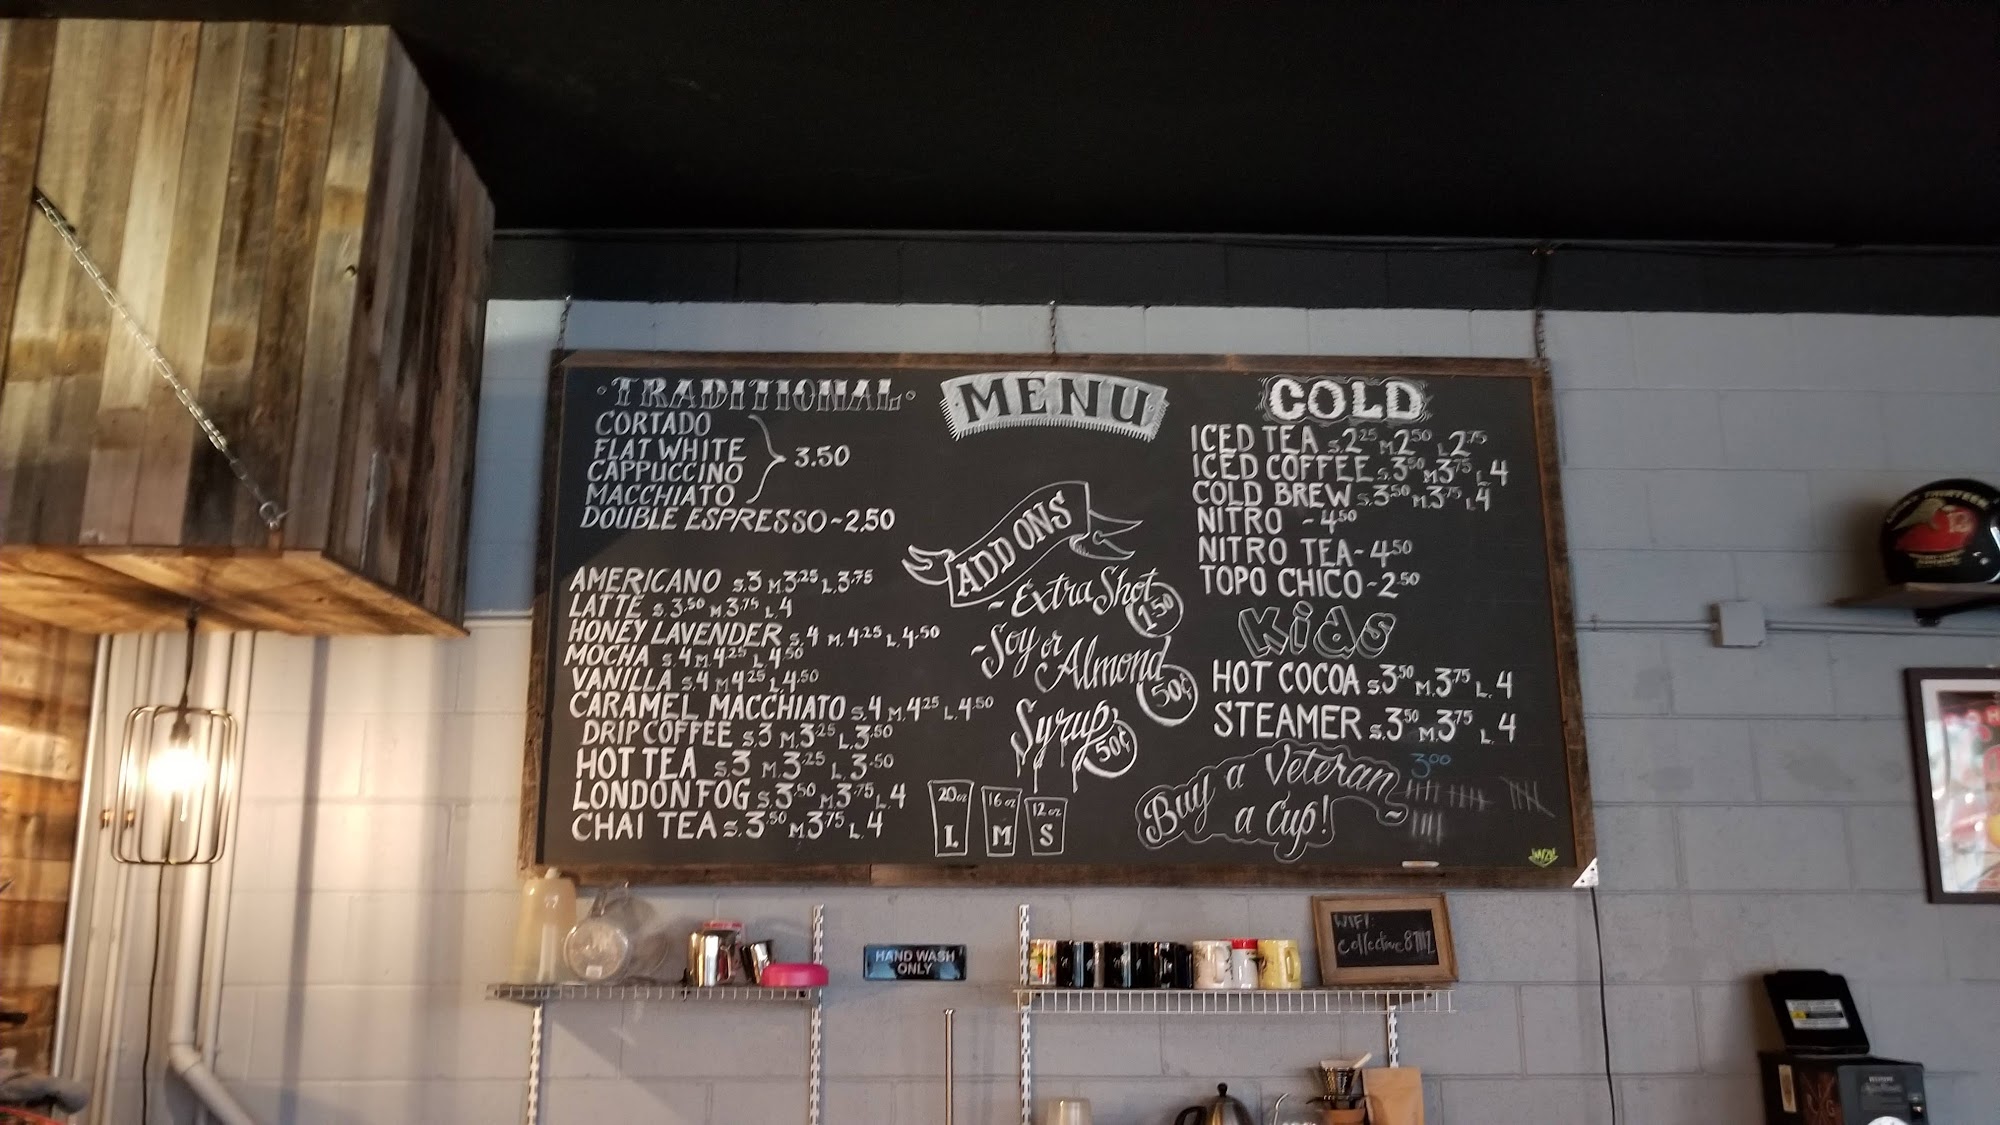 MENU
·TRADITIONAL·
CORTADO
FLAT WHITE
CAPPUCCINO
MACCHIATO
3.50
DOUBLE ESPRESSO ~ 2.50
AMERICANO S.3 M.3.25 L.3.75
LATTÉ S.3.50 M.3.75 L.4
HONEY LAVENDER S.4 M.4.25 L.4.50
MOCHA S.4 M.4.25 L.4.50
VANILLA S.4 M.4.25 L.4.50
CARAMEL MACCHIATO S.4 M.4.25 L.4.50
DRIP COFFEE S.3 M.3.25 L.3.50
HOT TEA S.3 M.3.25 L.3.50
LONDON FOG S.3.50 M.3.75 L.4
CHAI TEA S.3.50 M.3.75 L.4
ADD ONS
- Extra Shot 1.50
- Soy or Almond 50¢
Syrup 50¢
20oz L
16oz M
12oz S
COLD
ICED TEA S.2.25 M.2.50 L.2.75
ICED COFFEE S.3.50 M.3.75 L.4
COLD BREW S.3.50 M.3.75 L.4
NITRO - 4.50
NITRO TEA - 4.50
TOPO CHICO - 2.50
Kids
HOT COCOA S.3.50 M.3.75 L.4
STEAMER S.3.50 M.3.75 L.4
Buy a Veteran
a Cup!
3.00
HAND WASH
ONLY
WIFI: